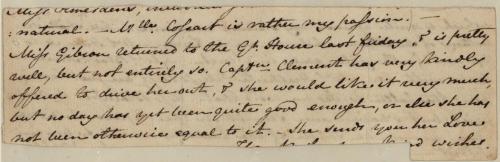 natural. – Mlle Cossart is rather my passion. –
Miss Gibson returned to the Gt. House last friday, & is pretty
well, but not entirely so. Captn. Clement has very kindly
offered to drive her out, & she would like it very much,
but no day has yet been quite good enough, or else she has
not been otherwise equal to it. – She sends you her Love.
kind wishes.